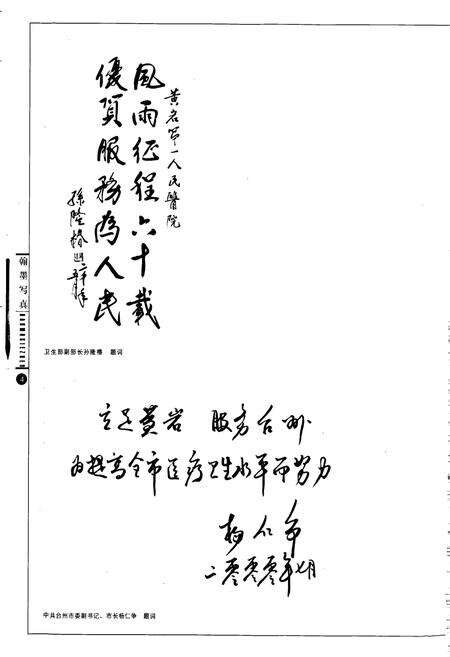 黄岩第一人民醫院
風雨征程六十載
優質服務為人民
孫隆椿
翰墨写真
4
卫生部副部长孙隆椿 题词
立足黄岩 服务台州
为提高全市医疗卫生水平而努力
杨仁争
二零零零年七月
中共台州市委副书记、市长杨仁争 题词